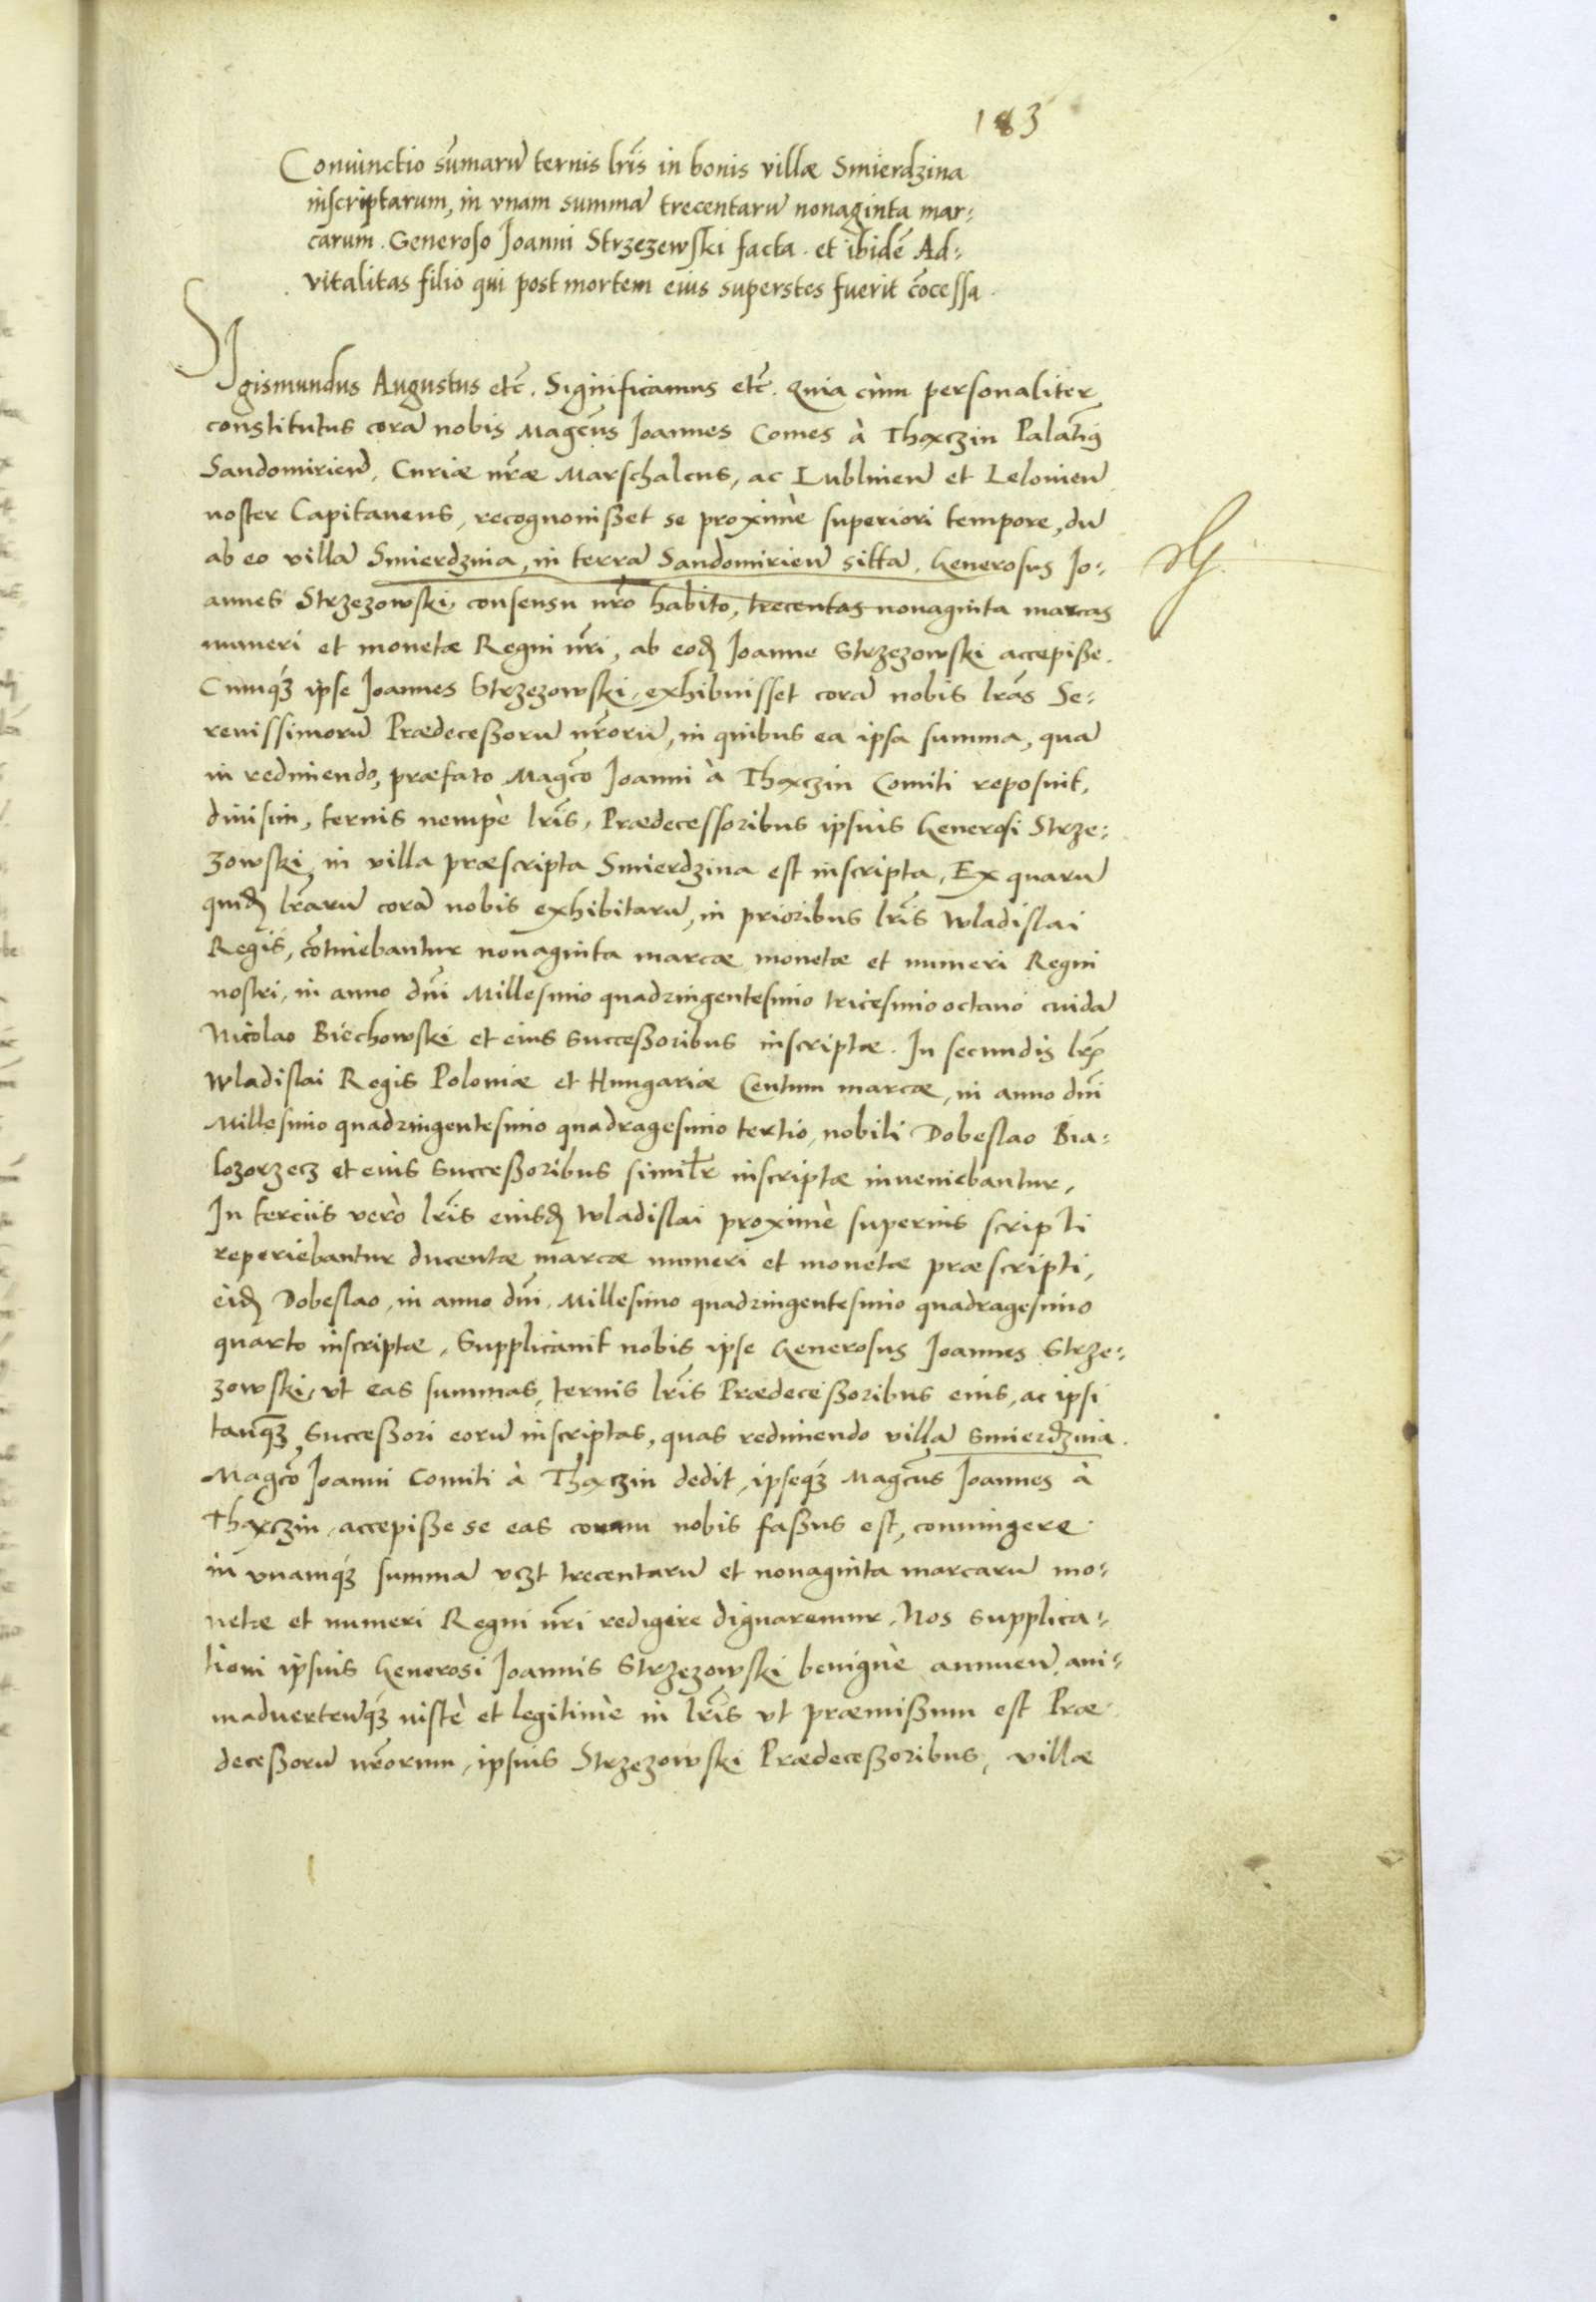 183
Conuinctio sūmarū ternis lr̄is in bonis villæ Smierdzina
inscriptarum, in vnam summā trecentarū nonaginta mar:
carum. Generoso Joanni Strzezewski facta. et ibidē Ad:
vitalitas filio qui post mortem eius superstes fuerit cōcessa.
SIgismundus Augustus etc̄. Significamus etc̄. Quia cùm personaliter
constitutus corā nobis Magc̄us Joannes Comes à Thaxczin Palatin̄9
Sandomirień, Curiæ nr̄æ Marschalcus, ac Lublineń et Lelovień
noster Capitaneus, recognouißet se proximè superiori tempore, dū
ab eo villā Smierdzina, in terra Sandomirień sittā, Generosus Jo:
annes Strzezowski, consensu nr̄o habito, trecentas nonaginta marcas
numeri et monetæ Regni nr̄i, ab eodꝫ Joanne Strzezowski accepiße.
Cumqꝫ ipse Joannes Strzezowski, exhibuisset corā nobis lr̄as Se:
renissimorū Prædeceßorū nr̄orū, in quibus ea ipsa summa, quā
in redimendo, præfato Magc̄o Joanni à Thaxczin Comiti reposuit,
diuisim, ternis nempè lr̄is, Prædecessoribus ipsuis Generosi Strze:
zowski, in villa præscripta Smierdzina est inscripta, Ex quarū
quidꝫ lr̄arū corā nobis exhibitarū, in prioribus lr̄is Wladislai
Regis, cōtinebantur nonaginta marcæ monetæ et numeri Regni
nostri, in anno dn̄i Millesimo quadringentesimo tricesimo octauo cuidā
Nicolao Biechowski et eius Succeßoribus inscriptæ. In secundis lr̄is
Wladislai Regis Poloniæ et Hungariæ Centum marcæ, in anno dn̄i
Millesimo quadringentesimo quadragesimo tertio, nobili Dobeslao Bia:
lozorzecz et eius Succeßoribus similr̄ inscriptæ inueniebantur,
In terciis verò lr̄is eiusdꝫ Wladislai proximè superius scripti
reperiebantur ducentæ marcæ numeri et monetæ præscripti,
eidꝫ Dobeslao, in anno dn̄i, Millesimo quadringentesimo quadragesimo
quarto inscriptæ, Supplicauit nobis ipse Generosus Joannes Strze:
zowski, vt eas summas, ternis lr̄is Prædeceßoribus eius, ac ipsi
tanqꝫ Succeßori eorū inscriptas, quas redimendo villā Smierdzina.
Magc̄o Joanni Comiti à Thaxczin dedit, ipseqꝫ Magc̄us Joannes à
Thaxczin, accepiße se eas coram nobis faßus est, conuingere
in vnamqꝫ summā vczt trecentarū et nonaginta marcarū mo:
netæ et numeri Regni nr̄i redigere dignaremur, Nos Supplica:
tioni ipsuis Generosi Joannis Strzezowski benignè annueń, ani:
maduerteńqꝫ iustè et legitimè in lr̄is vt præmißum est Præ
deceßorū nr̄orum, ipsuis Strzezowski Prædeceßoribus, villæ